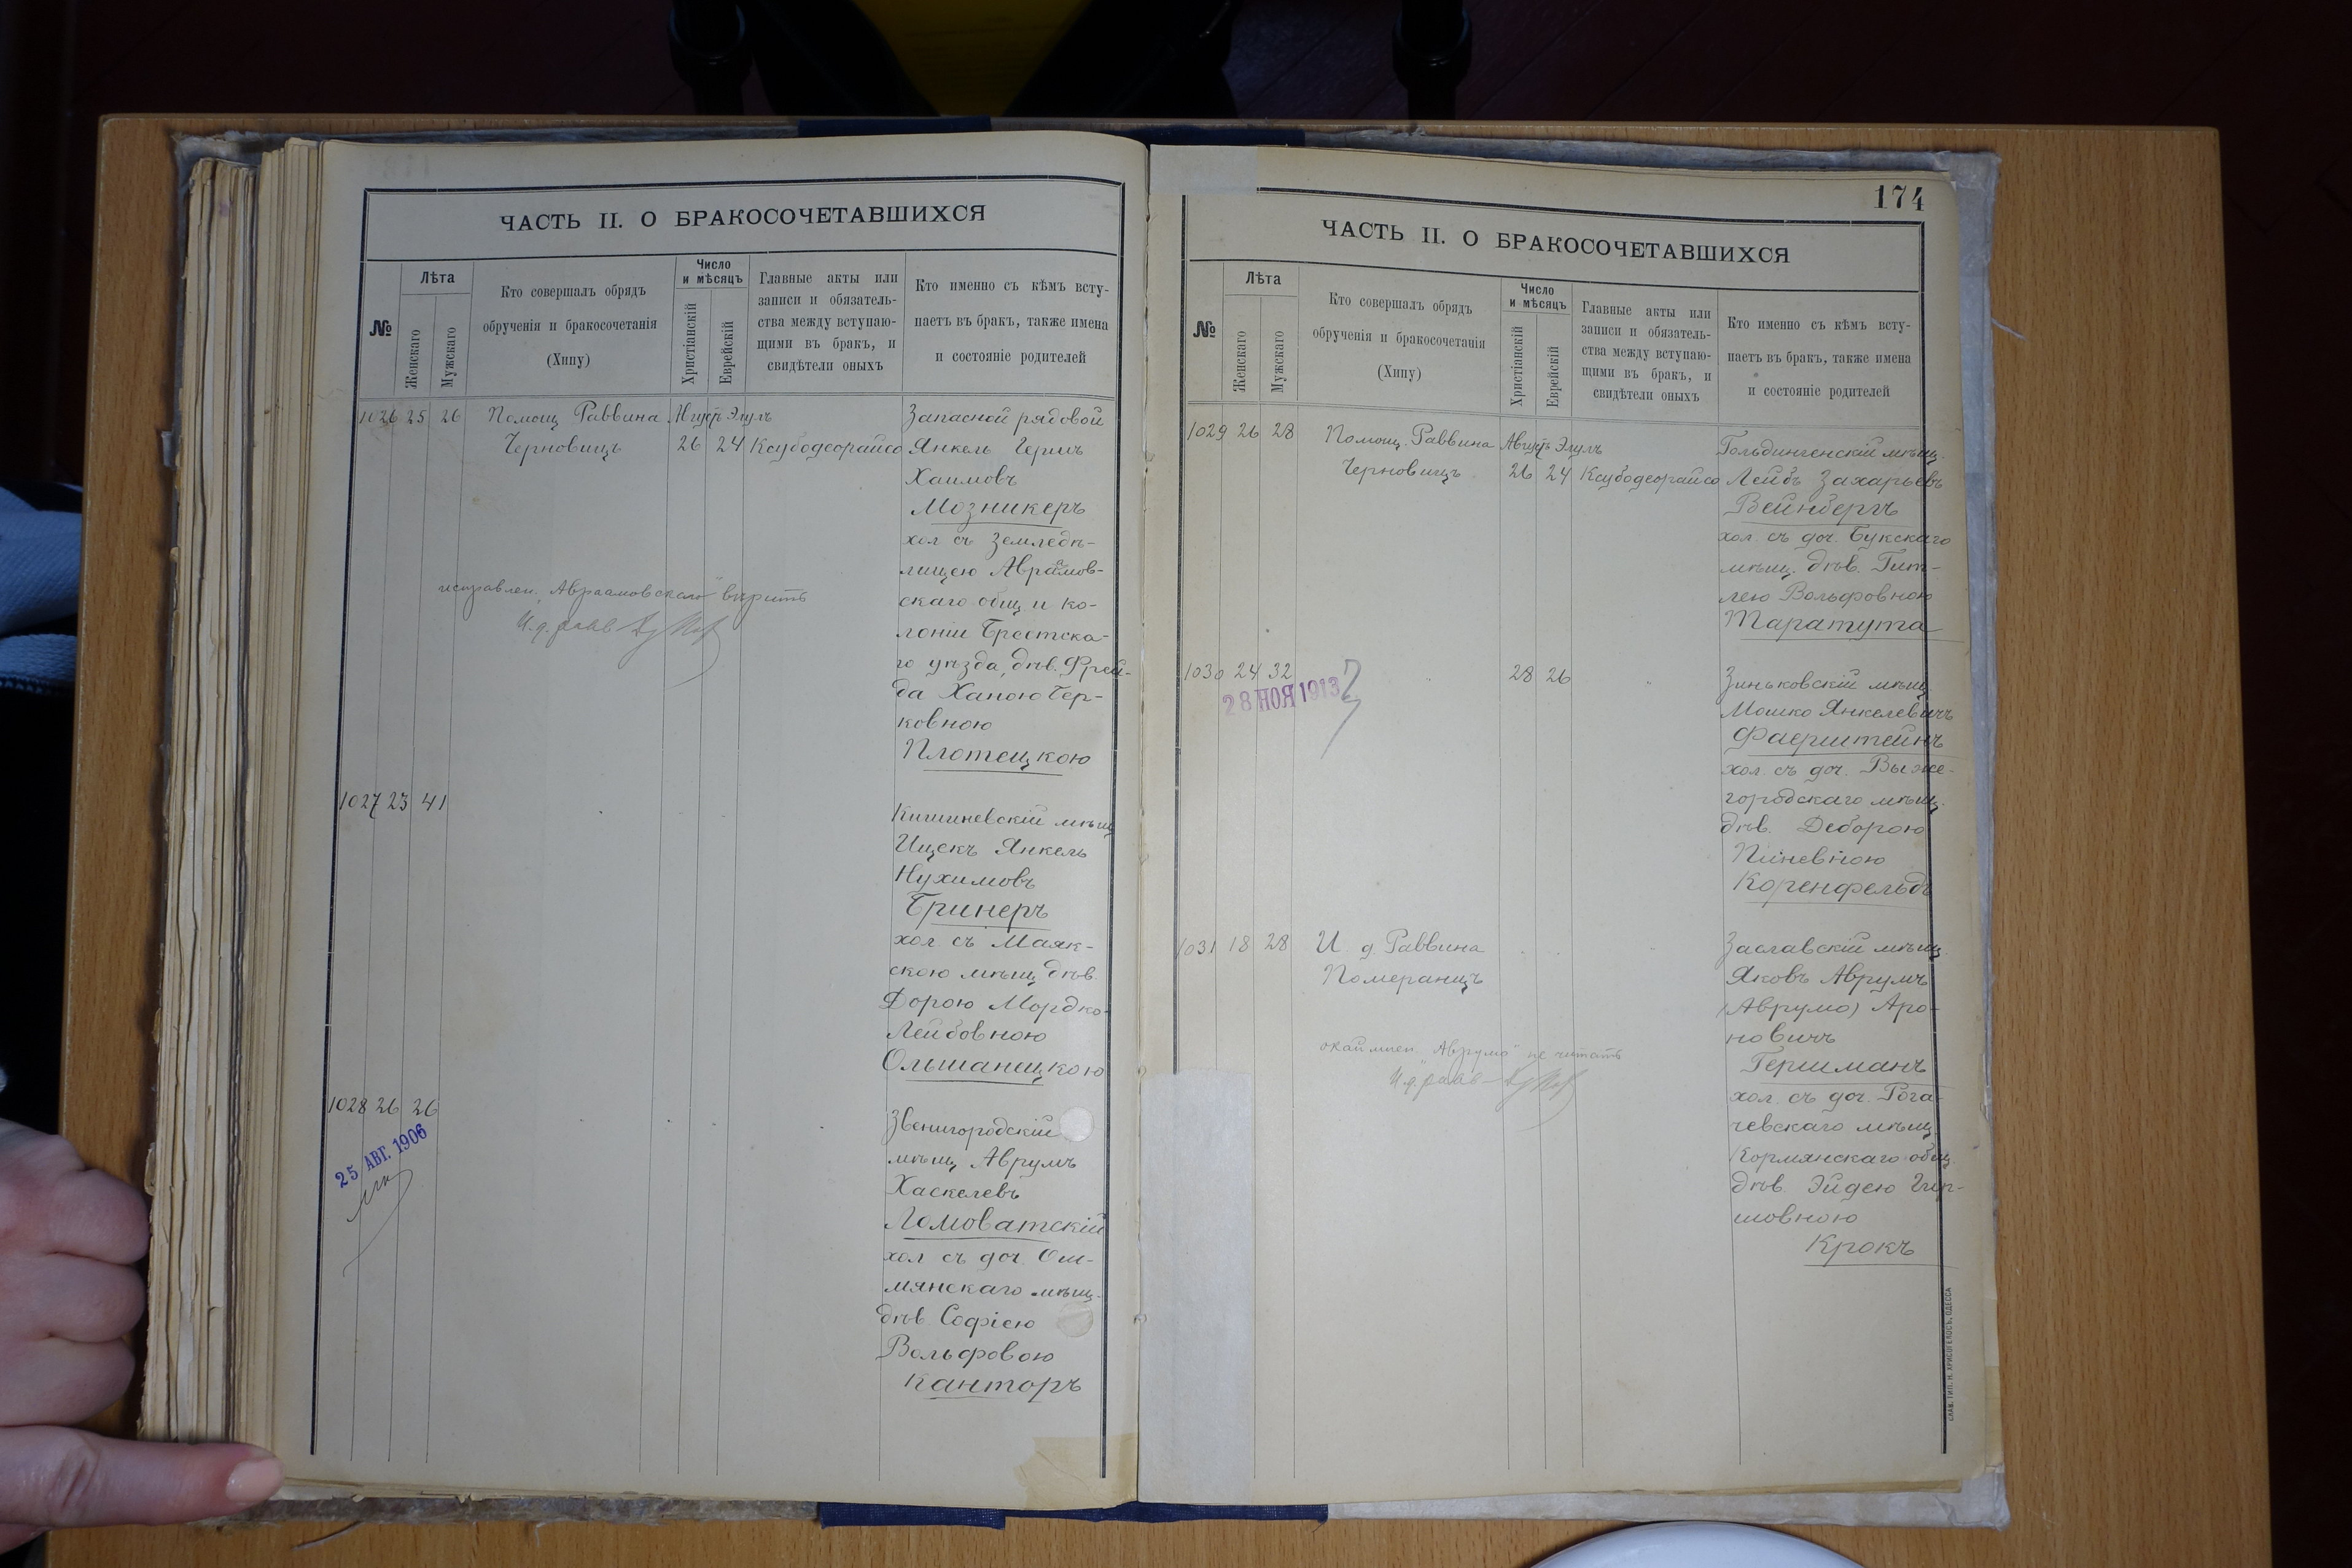 ЧАСТЬ II. О БРАКОСОЧЕТАВШИХСЯ
№
Лѣта
Женскаго
Мужскаго
Кто совершалъ обрядъ
обрученія и бракосочетанія
(Хипу)
Число
и мѣсяцъ
Христіанскій
Еврейскій
Главные акты или
записи и обязатель-
ства между вступаю-
щими въ бракъ, и
свидѣтели оныхъ
Кто именно съ кѣмъ всту-
паетъ въ бракъ, также имена
и состояніе родителей
1026 25 26 Помощ Раввина Августъ Элулъ Запасной рядовой
Черновицъ 26 24 Ксубодеорайсо Янкель Гершъ
Хаимовъ
Мозникеръ
хол съ Земледѣ-
лицею Аврамов-
скаго общ. и ко-
лоніи Брестска-
го уѣзда, дѣв. Фрей-
да Ханою Бер-
ковною
Плотецкою
исправлен. "Авраамовскаго" вѣрить
И.д. равв
1027 23 41
Кишиневскій мѣщ
Ицекъ Янкель
Нухимовъ
Бринеръ
хол. съ Маяк-
скою мѣщ. дѣв.
Дорою Мордко-
Лейбовною
Ольшаницкою
1028 26 26
25 АВГ. 1906
Звенигородскій
мѣщ. Аврумъ
Хаскелевъ
Ломоватскій
хол съ доч. Ош-
мянскаго мѣщ.
дѣв. Софіею
Вольфовою
Канторъ
174
ЧАСТЬ II. О БРАКОСОЧЕТАВШИХСЯ
№
Лѣта
Женскаго
Мужскаго
Кто совершалъ обрядъ
обрученія и бракосочетанія
(Хипу)
Число
и мѣсяцъ
Христіанскій
Еврейскій
Главные акты или
записи и обязатель-
ства между вступаю-
щими въ бракъ, и
свидѣтели оныхъ
Кто именно съ кѣмъ всту-
паетъ въ бракъ, также имена
и состояніе родителей
1029 26 28 Помощ. Раввина Августъ Элулъ Гольдингенскій мѣщ.
Черновицъ 26 24 Ксубодеорайсо Лейбъ Захарьевъ
Вейнбергъ
хол. съ доч. Букскаго
мѣщ. дѣв. Гит-
лею Вольфовною
Таратута
1030 24 32 " 28 26 "
28 НОЯ 1913
Зиньковскій мѣщ.
Мошко Янкелевичъ
Фаерштейнъ
хол. съ доч. Выже-
городскаго мѣщ.
дѣв. Деборою
Пиневною
Коренфельдъ
1031 18 28 И д. Раввина
Померанцъ
Заславскій мѣщ.
Яковъ Аврумъ
(Аврумо) Аро-
новичъ
Гершманъ
хол. съ доч. Рога-
чевскаго мѣщ.
Кормянскаго общ.
дѣв. Эйдею Гир-
шовною
Крокъ
окаймлен. "Аврумо" не читать
И.д. равв
СЛАВ. ТИП. Н. ХРИСОГЕЛОСЪ, ОДЕССА